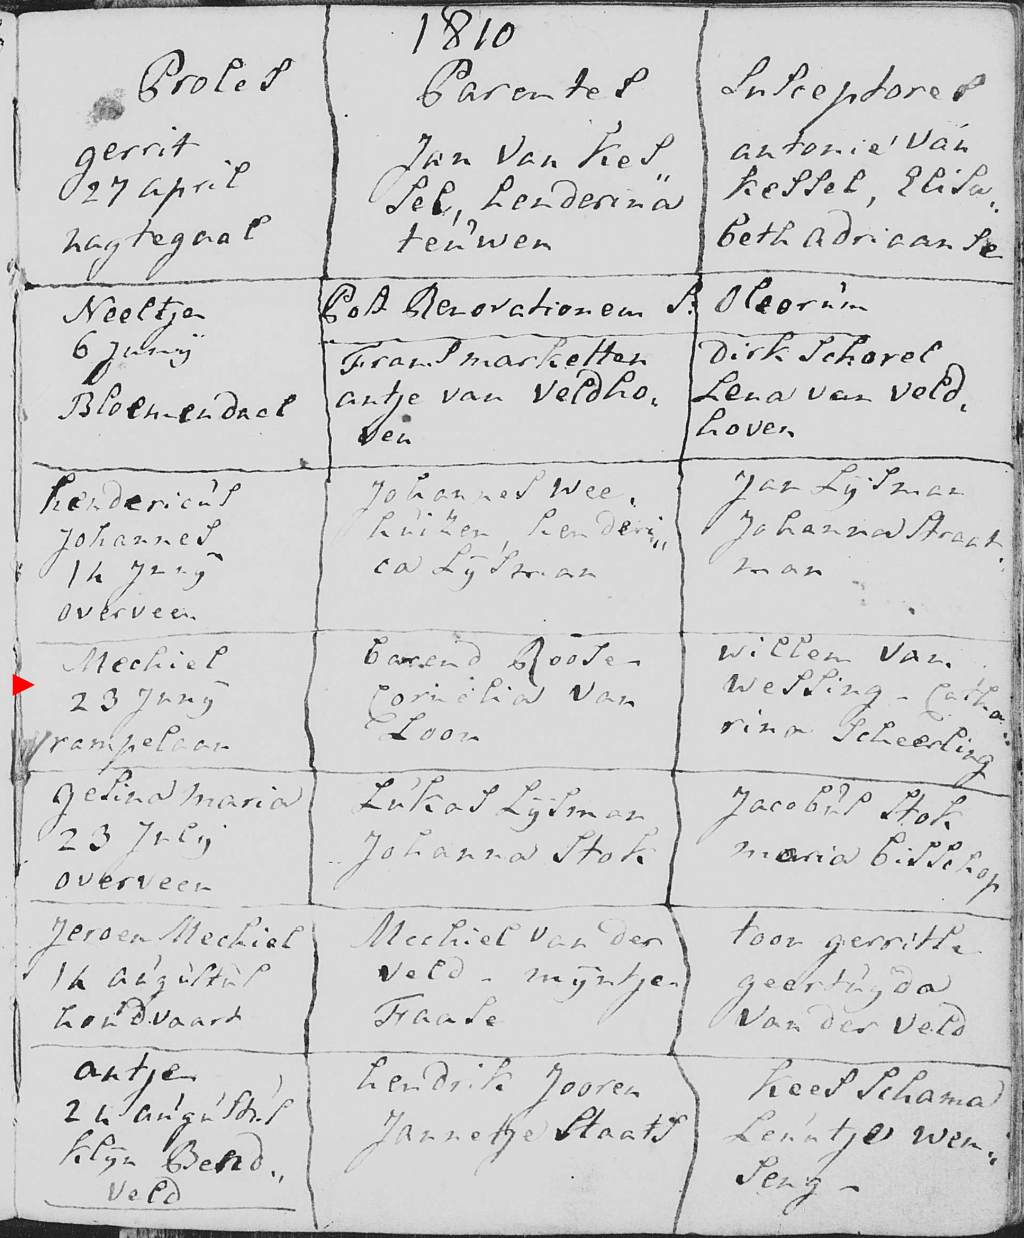 1810
Proles
Parentes
Susceptores
gerrit
27 april
nagtegaal
Jan Van Kes
sel, henderina
teúwen
antonie Van
Kessel, Elisa„
beth adriaanse
Neeltje
6 Junÿ
Bloemendael
Post Renovationem S: Oleorúm
Frans marketten
antje van Veldho.
ven
Dirk Schorel
Lena van Veld,
hoven
hendericús
Johannes
14 Junÿ
overveen
Johannes Wee,
húizen, henderi„
ca Lÿsman
Jan Lÿsman
Johanna Straat,
man
Mechiel
23 Junÿ
rampelaan
barend Roose
Cornelia Van
Loon
willem Van
Wessing - Catha„
rina Scheerling
gesina maria
23 Julÿ
overveen
Lúkas Lÿsman
Johanna Stok
Jacobús Stok
maria bisschop
Jeroen Mechiel
14 aúgústús
houdvaart
Mechiel Van der
Veld - mÿntje
Fraase
toon gerritse
geertúÿda
Van der Veld
antje
24 aúgústús
klÿn Bend„
Veld
hendrik Jooren
Jannetje Staats
Kees Schama
Leúntje Wem„
seng -